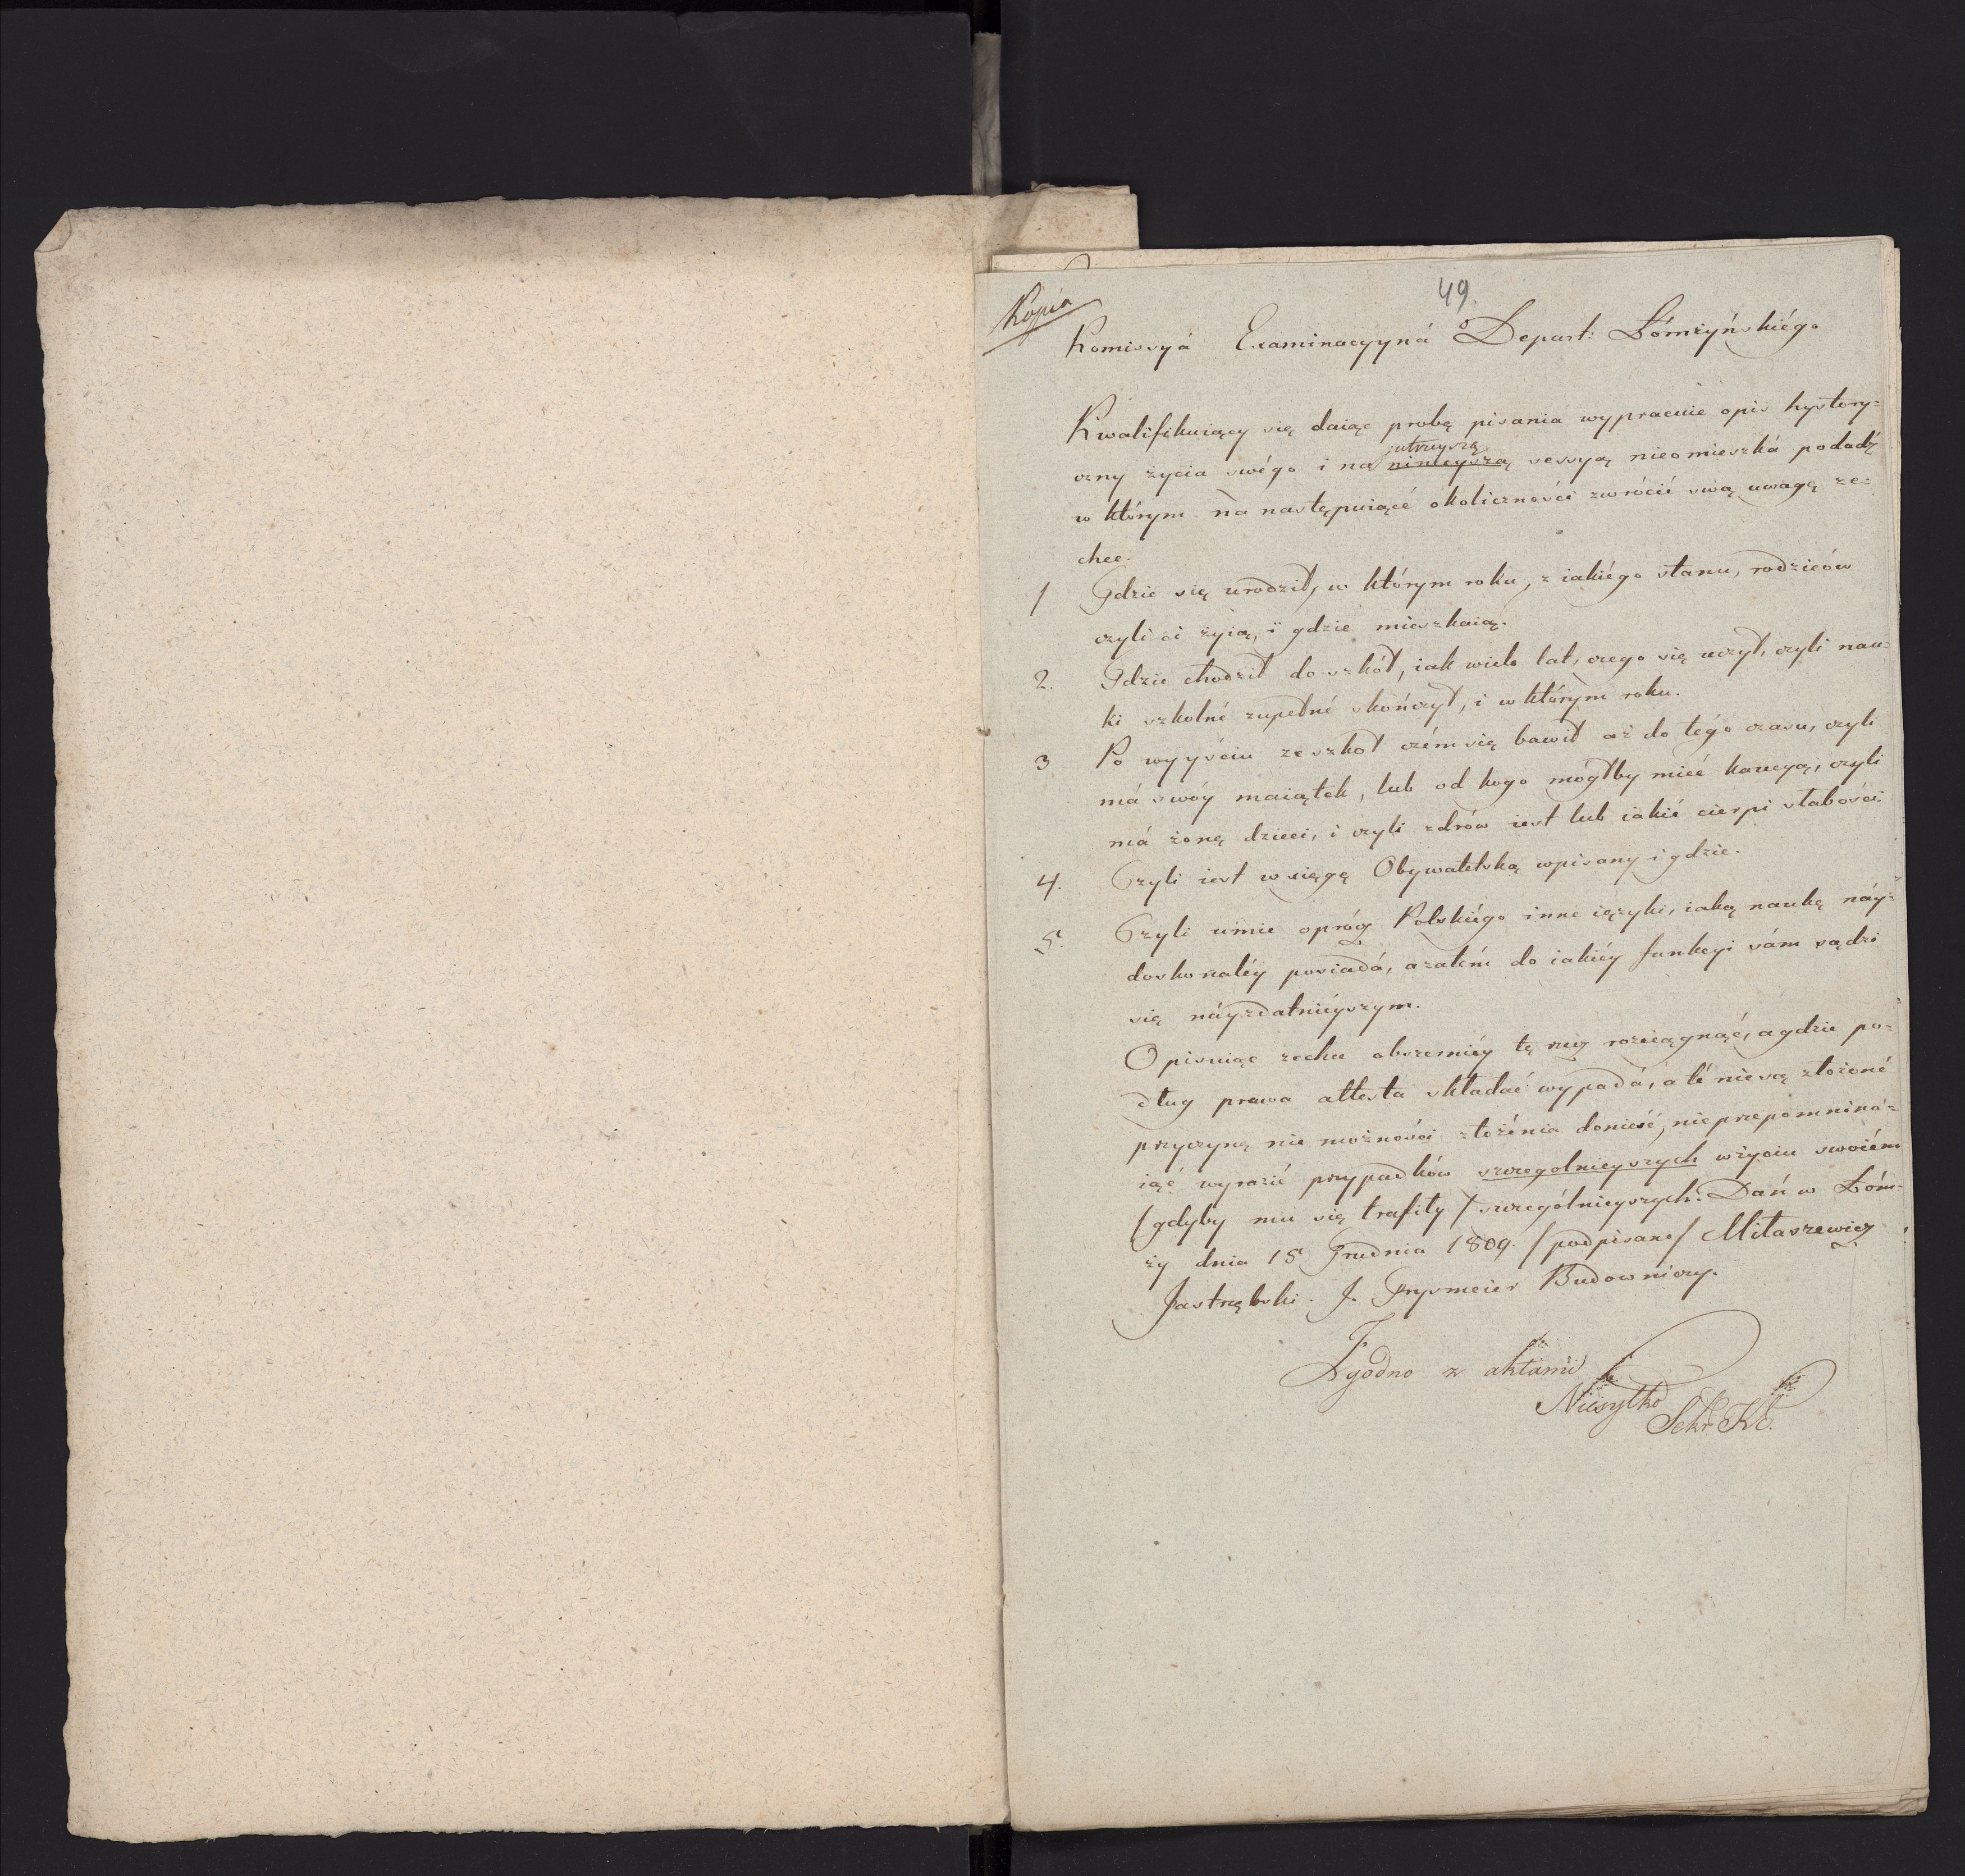 49.
Kopia
Komissyá Examinacyyná Depart: Łómżyńskiégo
Kwalifikuiący się daiąc probę pisania wypracuie opis hystory=
czny życia swégo i na nimieyszą sessyą nieomieszká podadź
jutrzyszą
w którym na następuiącé okoliczności zwrócić swą uwagę ze=
chce.
1 Gdzie się urodził, w którym roku, z iakiégo stanu, rodziców
czyli ci żyią, i gdzie mieszkaią.
2. Gdzie chodził do szkół, iak wiele lat, czego się uczył, czyli nau=
ki szkolné zupełné skończył, i w którym roku.
3 Po wyyściu ze szkoł czém się bawił aż do tégo czasu, czyli
má swóy maiątek, lub od kogo mógłby mieć kaucyą, czyli
má żonę dzieci, i czyli zdrów iest lub iakié cierpi słabości.
4. Czyli iest w xięgę Obywatelską wpisany i gdzie.
5. Czyli umie oprócz Polskiégo inne ięzyki, iaką naukę náy=
doskonaléy posiadá, azatém do iakiéy funkcyi sám sądzi
się náyzdatniéyszym.
Opisuiąc zechce obszerniéy tę rzecz rozciągnąć, a gdzie po=
dług prawa attesta składać wypadá, a té nie są złożoné
przyczynę nie możności złożénia donieść, nieprzepomniná=
iąc wyrazić przypadków szczegolnieyszych w życiu swoiém
/gdyby mu się trafiły/ szczególnieyszych. Dań w Łóm=
ży dnia 15 Grudnia 1809. /podpisano/ Miłaszewicz
Jastrzębski. J. Grysmeier Budowniczy.
Zgodno z aktami
Niesytko
Sekr KE.